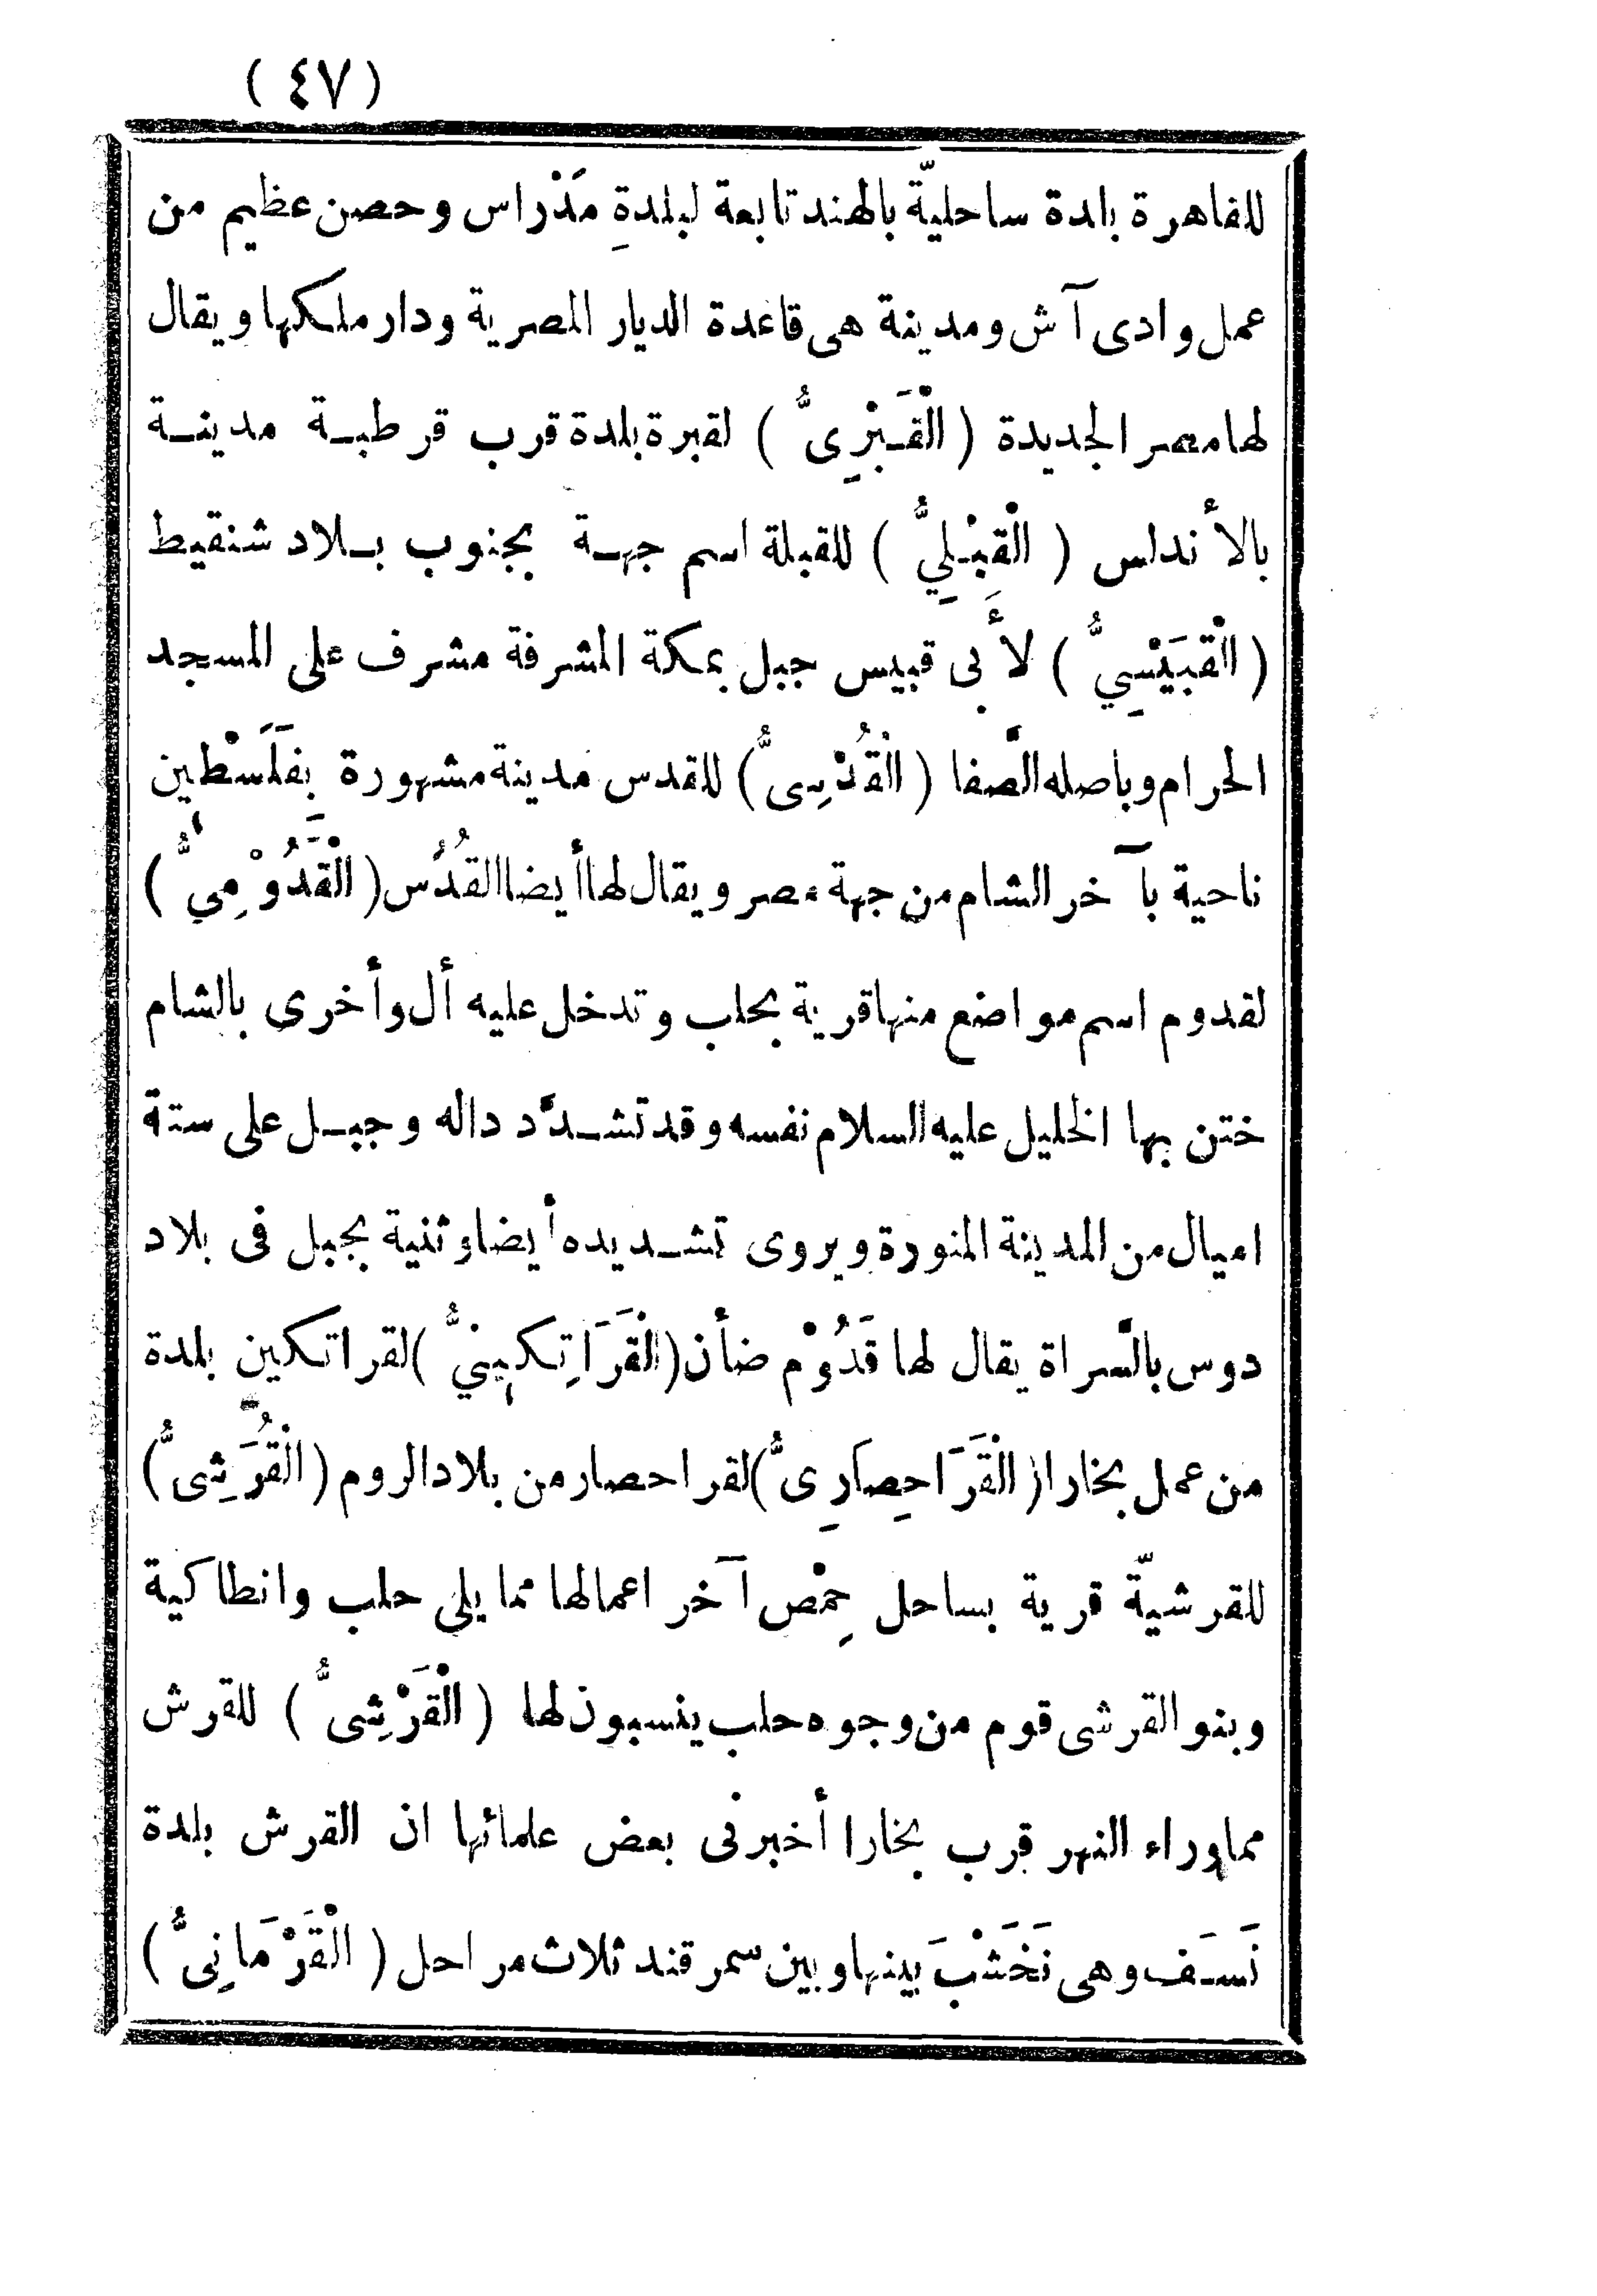 (٤٧)
للقاهرة بلدة ساحليّة بالهند تابعة لبلدةِ مَدْراس وحصن عظيم من
عمل وادى آش ومدينة هى قاعدة الديار المصرية ودار ملكها ويقال
لها مصر الجديدة (الْقَبْرِىُّ) لقبرة بلدة قرب قرطبة مدينة
بالأندلس (الْقِبْلِيُّ) للقبلة اسم جهة بجنوب بلاد شنقيط
(الْقبَيْسِيُّ) لأبى قبيس جبل بمكة المشرفة مشرف على المسجد
الحرام وباصله الصَّفا (الْقُدْسِىُّ) للقدس مدينة مشهورة بِفَلَسْطِين
ناحية بآخر الشام من جهة مصر ويقال لها أيضا القُدُس (الْقَدُوْمِيُّ)
لقدوم اسم مواضع منها قرية بحلب وتدخل عليه أل وأخرى بالشام
ختن بها الخليل عليه السلام نفسه وقد تشدَّد داله وجبل على ستة
اميال من المدينة المنورة ويروى تشديده أيضا وثنية بجبل فى بلاد
دوس بالسَّراة يقال لها قَدُوْم ضأن (الْقَرَاتِكِينيُّ) لقراتكين بلدة
من عمل بخارا (الْقَرَاحِصَارِىُّ) لقراحصار من بلاد الروم (الْقُرَشِىُّ)
للقرشيّة قرية بساحل حِمْص آخر اعمالها مما يلى حلب وانطاكية
وبنو القرشى قوم من وجوه حلب ينسبون لها (الْقَرْشِىُّ) للقرش
مماوراء النهر قرب بخارا أخبرنى بعض علمائها ان القرش بلدة
نَسَف وهى نَخَشْبَ بينها وبين سمرقند ثلاث مراحل (الْقَرْمَانِىُّ)